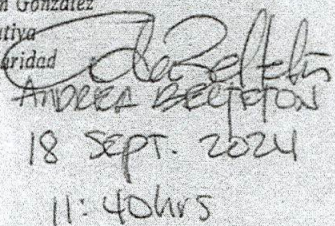 n González
utiva
uridad
ANDREA BELTETON
18 SEPT. 2024
11:40hrs